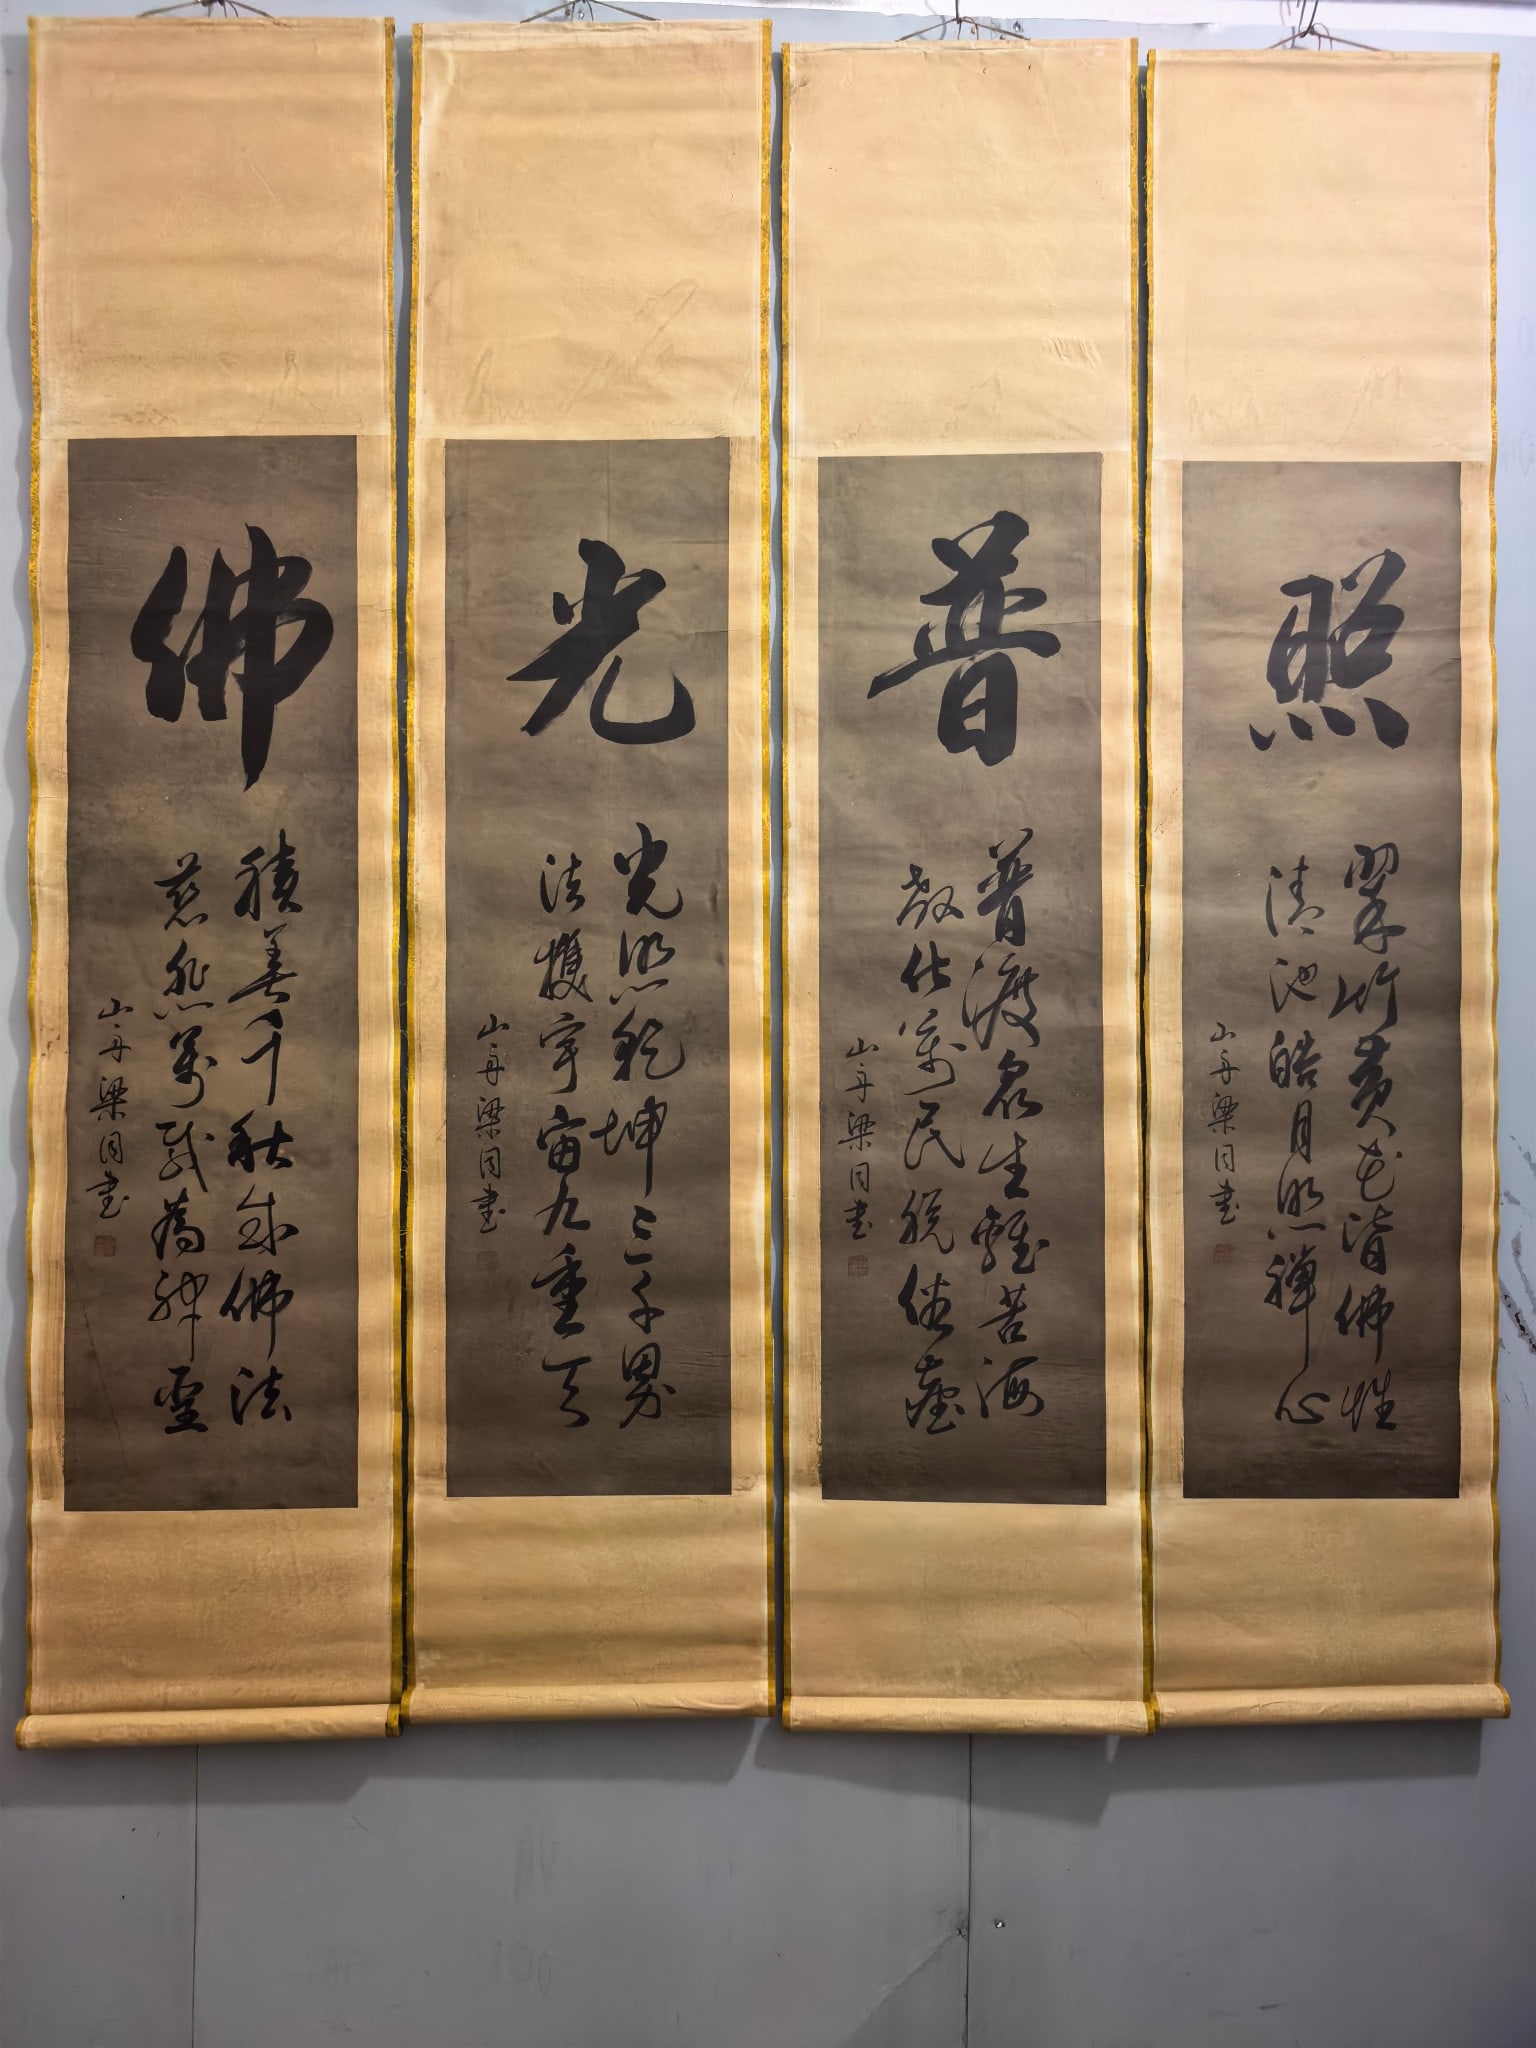 佛
積善千秋成佛法
慈悲萬載為神靈
山舟梁同書
光
光照乾坤三千界
法攬宇宙九重天
山舟梁同書
普
普渡眾生離苦海
教化萬民脫俗塵
山舟梁同書
照
翠竹黃花皆佛性
清池皓月照禪心
山舟梁同書